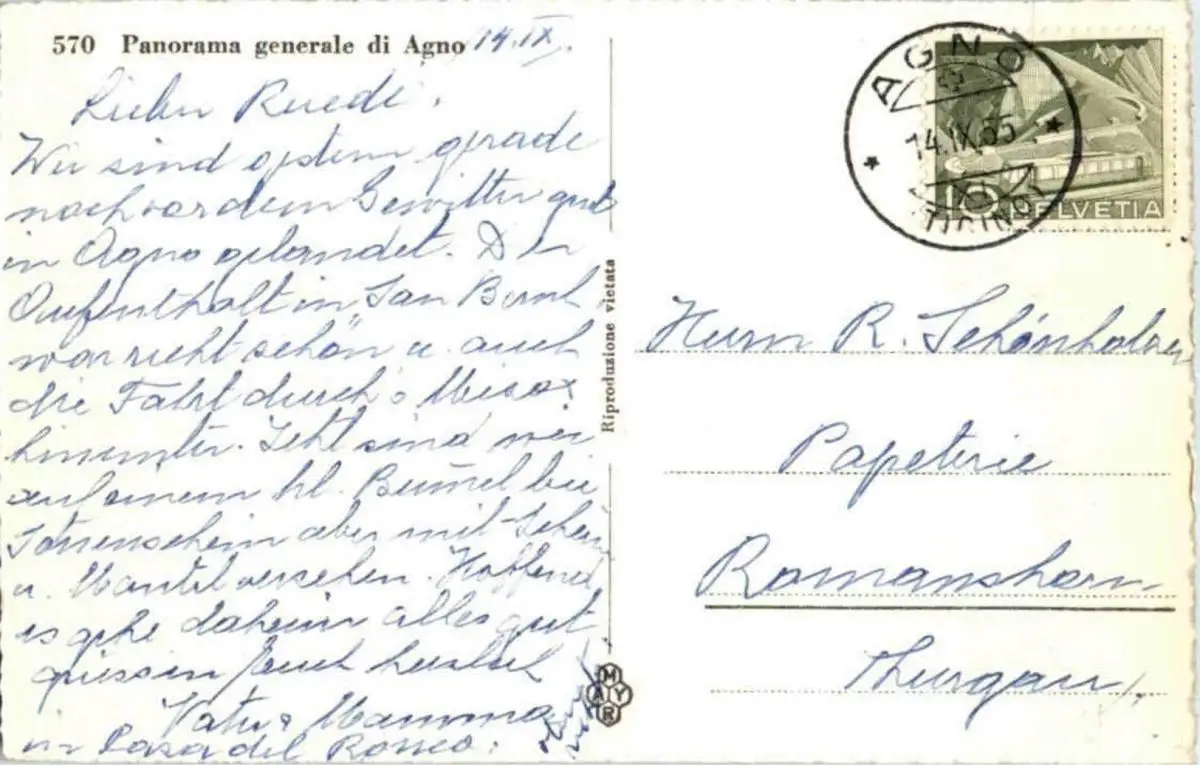 570 Panorama generale di Agno 14.IX.
Lieber Ruedi,
Wir sind gestern gerade
noch vor dem Gewitter gut
in Agno gelandet. Der
Aufenthalt in „San Bernh
war recht schön u. auch
die Fahrt durch's Misox
hinunter. Jetzt sind wir
auf einem kl. Bummel bei
Sonnenschein aber mit Schirm
u. Mantel versehen. Hoffend,
es gehe daheim alles gut
grüssen Euch herzlich
Vater & Mamma
in Casa del Rosso.
Riproduzione vietata
MAYR
AGNO
14.IX.55
(TICINO)
10 HELVETIA
Herrn R. Schönholzer
Papeterie
Romanshorn
Thurgau.